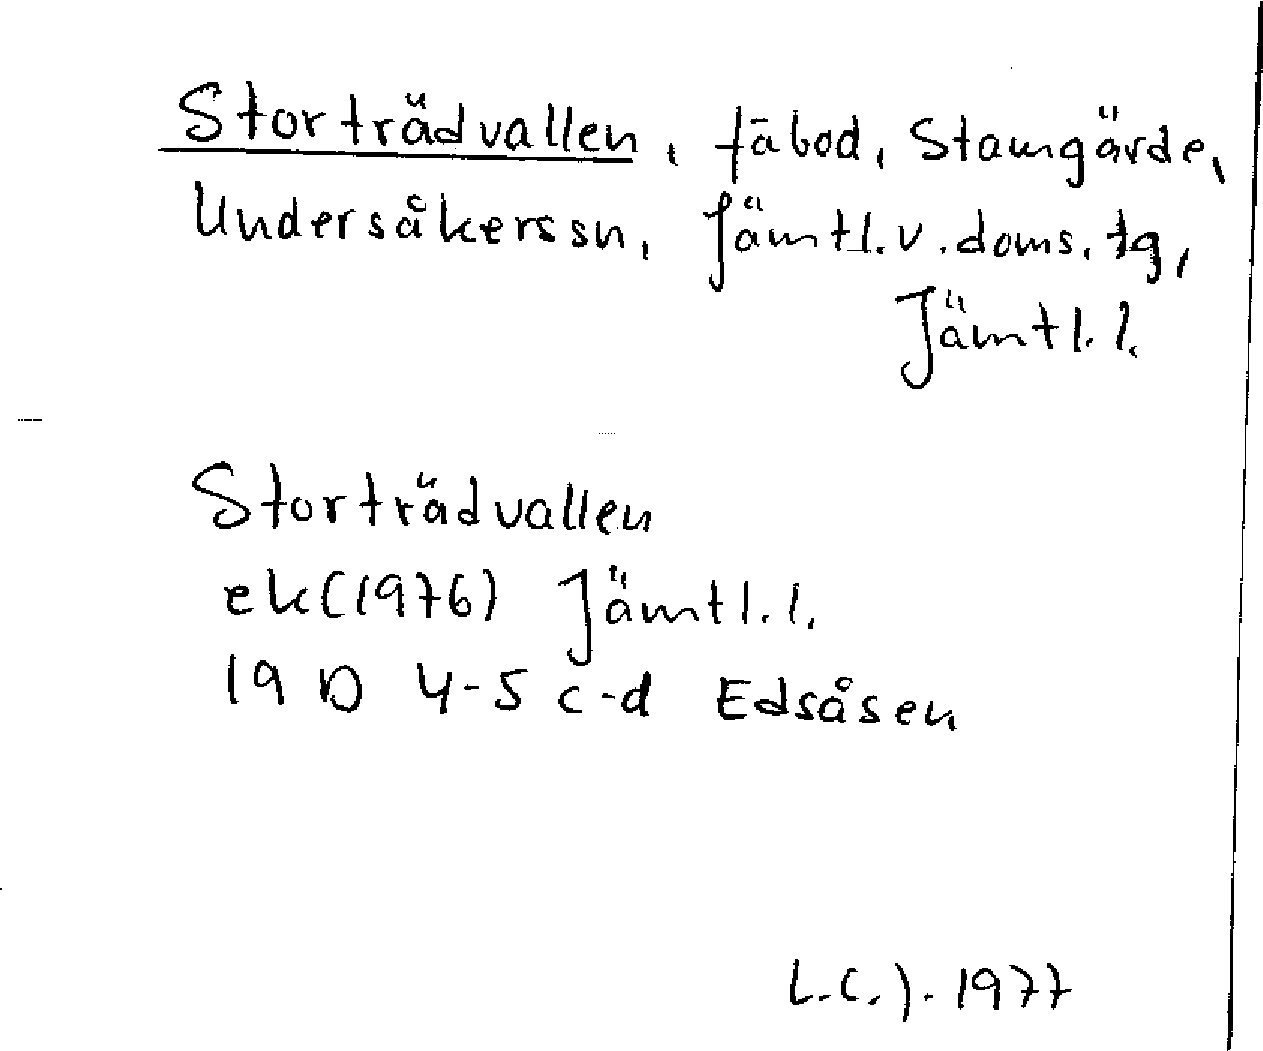 Storträdvallen, fäbod, Stamgärde,
Undersåkers sn, Jämtl. v. doms. tg,
Jämtl. l.
Storträdvallen
ek (1976) Jämtl. l.
19 D 4-5 c-d Edsåsen
L.C.J. 1977